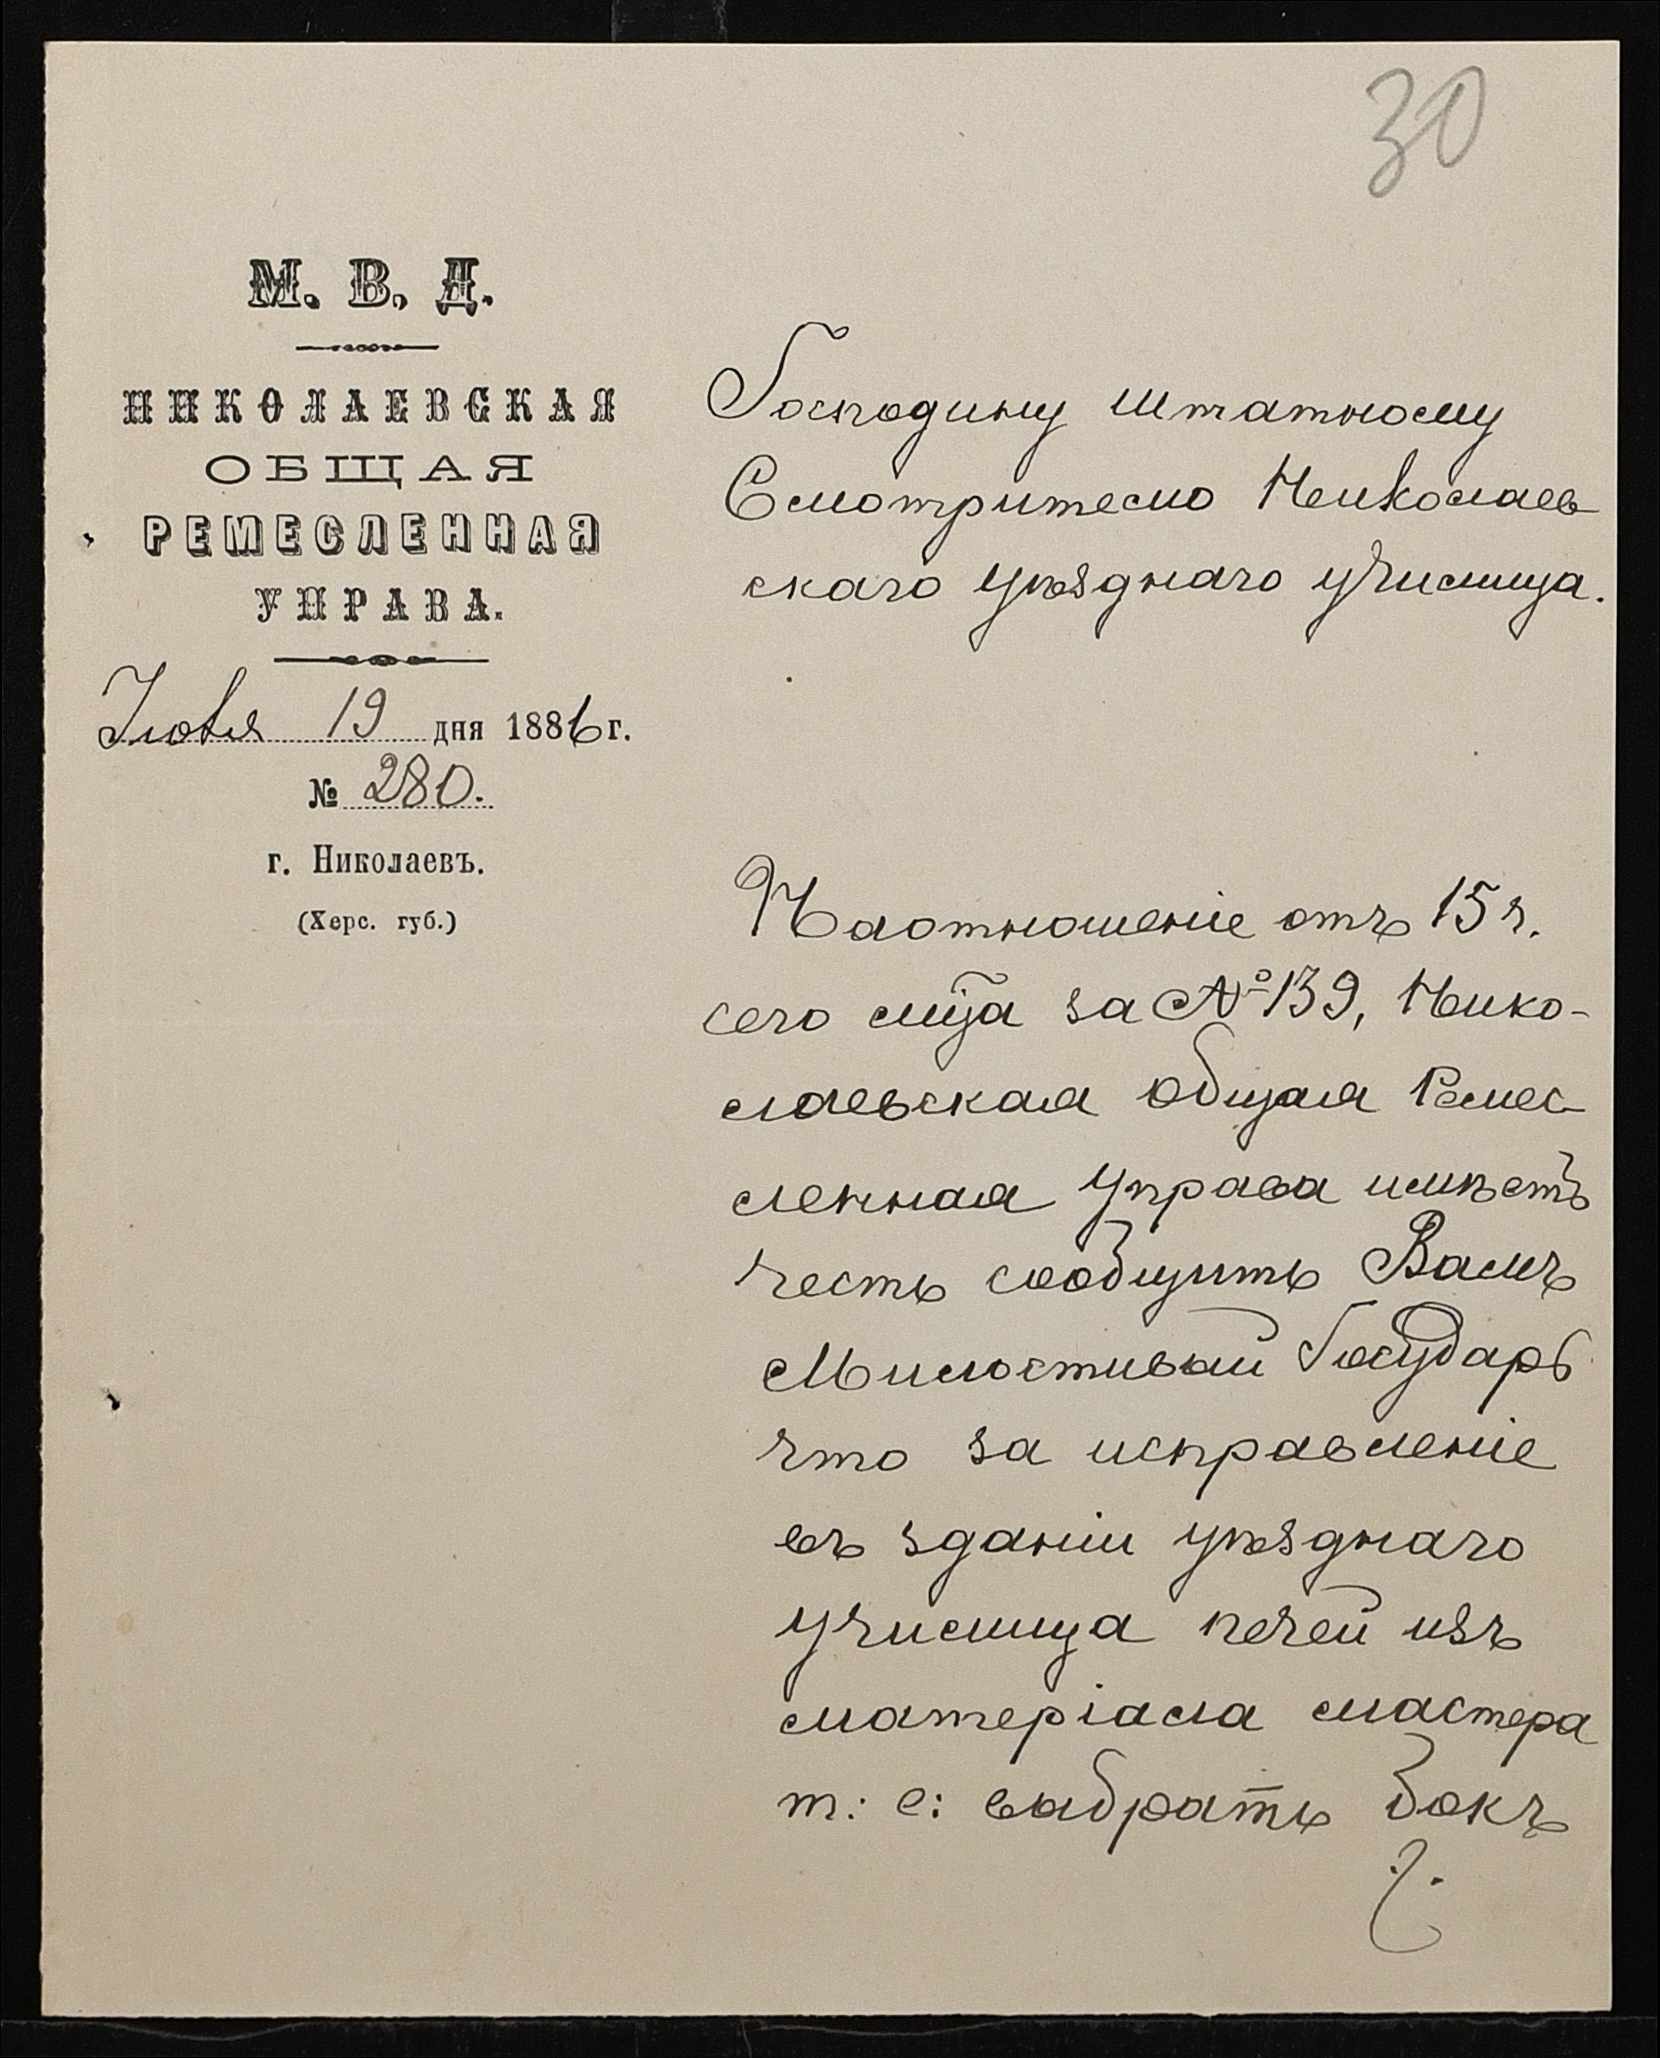 30
М. В. Д.
НИКОЛАЕВСКАЯ
ОБЩАЯ
РЕМЕСЛЕННАЯ
УПРАВА.
19 дня 1886 г.
№ 280.
г. Николаевъ.
(Херс. губ.)
Господину штатному
Смотрителю Николаев
скаго уѣзднаго училища.
На отношеніе отъ 15 ч.
сего мца за № 139, Нико-
лаевская общая Ремес-
ленная Управа имѣетъ
честь сообщить Вамъ
Милостивый Государь
что за исправленіе
въ зданіи уѣзднаго
училища печей изъ
матеріала мастера
т: е: выбрать бокъ